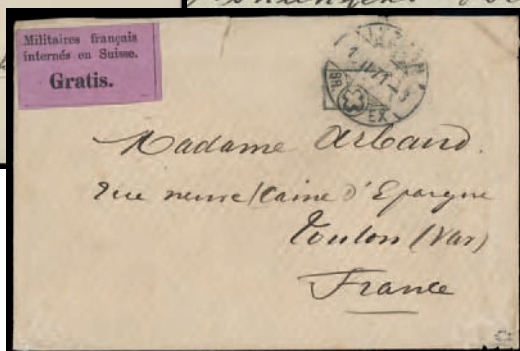 Militaires français
internés en Suisse.
Gratis.
BR. EX.
Madame Arbaud.
Rue neuve (Caisse d'Epargne
Toulon (Var)
France